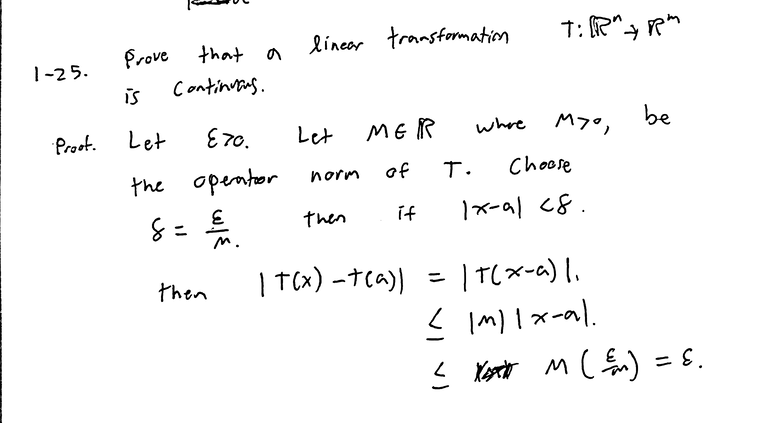 1-25. Prove that a linear transformation T: ℝⁿ → ℝᵐ
is Continuous.
Proof. Let ε>0. Let M∈ℝ where M>0, be
the operator norm of T. Choose
δ = ε/M. then if |x-a| < δ.
then |T(x) - T(a)| = |T(x-a)|,
≤ |M| |x-a|.
≤ M (ε/m) = ε.